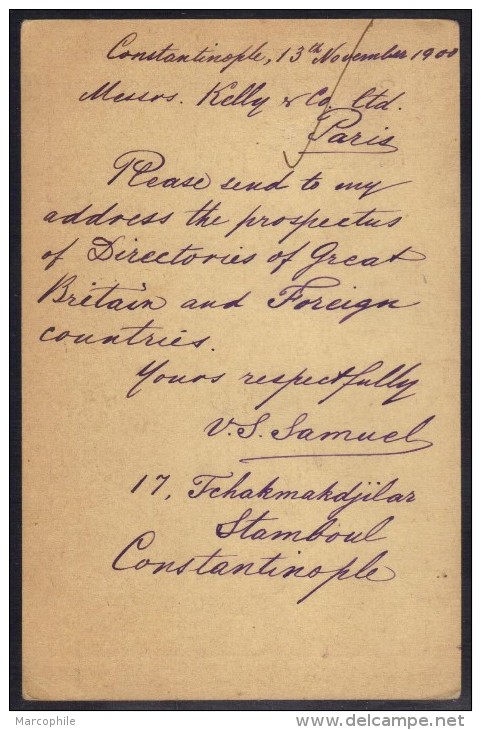 Constantinople, 13th November 1900
Messrs. Kelly & Co. Ltd.
Paris
Please send to my
address the prospectus
of Directories of Great
Britain and Foreign
countries.
Yours respectfully
V.S. Samuel
17, Tchakmakdjilar
Stamboul
Constantinople
Marcophile
www.delcampe.net